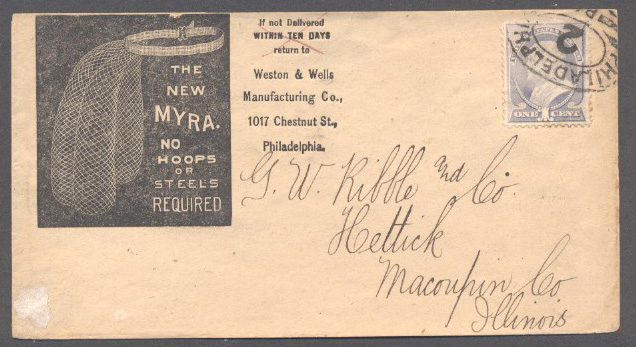 THE
NEW
MYRA.
NO
HOOPS
OR
STEELS
REQUIRED
If not Delivered
WITHIN TEN DAYS
return to
Weston & Wells
Manufacturing Co.,
1017 Chestnut St.,
Philadelphia.
PHILADELPH
2
ONE CENT
G. W. Kibble and Co.
Hettick
Macoupin Co
Illinois